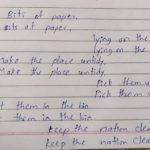 Bits of paper,
Bits of paper,
lying on the
lying on the
Make the place untidy,
Make the place untidy,
Pick them
Pick them
them in the bin
them in the bin
Keep the nation clea
Keep the nation clea